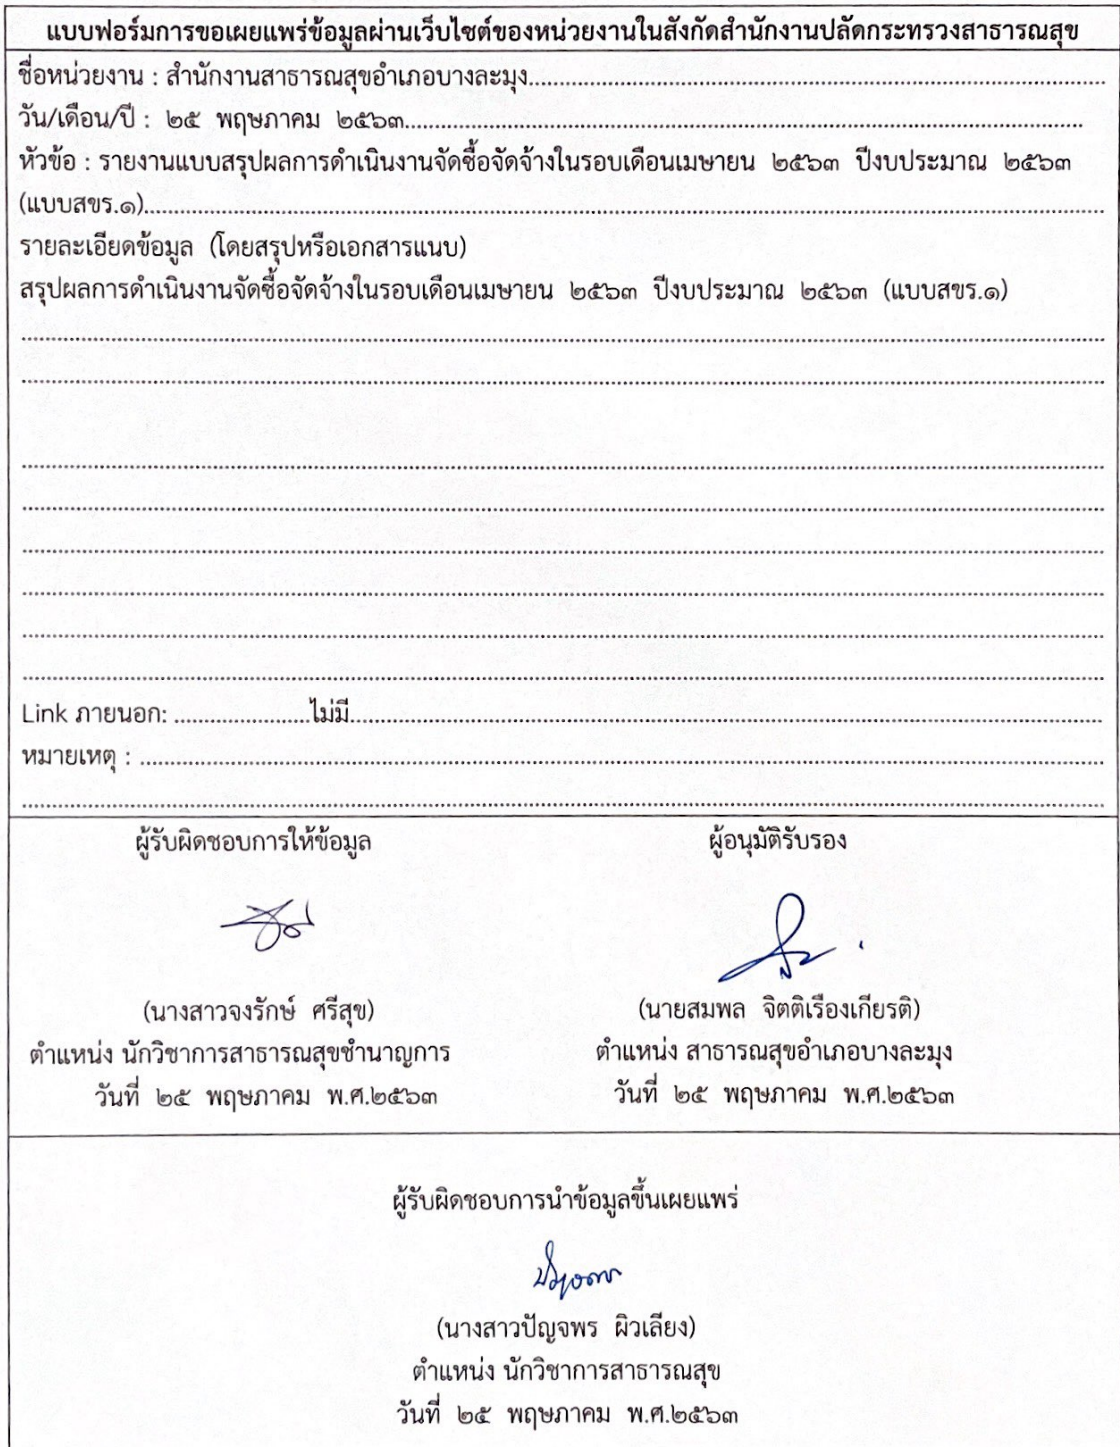 แบบฟอร์มการขอเผยแพร่ข้อมูลผ่านเว็บไซต์ของหน่วยงานในสังกัดสำนักงานปลัดกระทรวงสาธารณสุข
ชื่อหน่วยงาน : สำนักงานสาธารณสุขอำเภอบางละมุง
วัน/เดือน/ปี : ๒๕ พฤษภาคม ๒๕๖๓
หัวข้อ : รายงานแบบสรุปผลการดำเนินงานจัดซื้อจัดจ้างในรอบเดือนเมษายน ๒๕๖๓ ปีงบประมาณ ๒๕๖๓
(แบบสขร.๑)
รายละเอียดข้อมูล (โดยสรุปหรือเอกสารแนบ)
สรุปผลการดำเนินงานจัดซื้อจัดจ้างในรอบเดือนเมษายน ๒๕๖๓ ปีงบประมาณ ๒๕๖๓ (แบบสขร.๑)
Link ภายนอก: ไม่มี
หมายเหตุ :
ผู้รับผิดชอบการให้ข้อมูล
(นางสาวจงรักษ์ ศรีสุข)
ตำแหน่ง นักวิชาการสาธารณสุขชำนาญการ
วันที่ ๒๕ พฤษภาคม พ.ศ.๒๕๖๓
ผู้อนุมัติรับรอง
(นายสมพล จิตติเรืองเกียรติ)
ตำแหน่ง สาธารณสุขอำเภอบางละมุง
วันที่ ๒๕ พฤษภาคม พ.ศ.๒๕๖๓
ผู้รับผิดชอบการนำข้อมูลขึ้นเผยแพร่
(นางสาวปัญจพร ผิวเลียง)
ตำแหน่ง นักวิชาการสาธารณสุข
วันที่ ๒๕ พฤษภาคม พ.ศ.๒๕๖๓